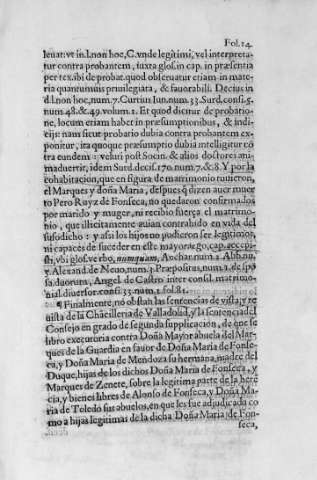 Fol. 14.
leuatiue in l. non hoc, C. vnde legitimi, vel interpreta-
tur contra probantem, iuxta glos. in cap. in præsentia
per tex. ibi de probat. quod obseruatur etiam in mate-
ria quantumuis priuilegiata, & fauorabili. Decius in
d. l. non hoc, num. 7. Curtius Iun. num. 33. Surd. consi. 5.
num. 48. & 49. volum. 1. Et quod dicitur de probatio-
ne, locum etiam habet in præsumptionibus, & indi-
cijs: nam sicut probatio dubia contra probantem ex
ponitur, ita quoque præsumptio dubia intelligitur có
tra eundem: veluti post Socin. & alios doctores ani-
maduertit, idem Surd. decis. 170. num. 7. & 8. Y por la
cohabitacion, que en figura de matrimonio tuuieron,
el Marques y doña Maria, despues q̃ dizen auer muer
to Pero Ruyz de Fonseca, no quedaron confirmados
por marido y muger, ni recibio fuerça el matrimo-
nio, que illicitamente auian contrahido en vida del
susodicho: y assi los hijos no pudieron ser legitimos,
ni capaces de suceder en este mayorazgo, cap. accepi-
sti, vbi glos. verbo, nunquam, Anchar. num. 2. Abb. nu.
5. Alexand. de Neuo, num. 3. Præpositus, num. 2. de spó
sa duorum, Angel. de Castro inter consil. matrimo-
nial. diuersor. consi. 33. num. 1. fol. 81.
¶ Finalmente, no obstan las sentencias de vista, y re
uista de la Chãcilleria de Valladolid, y la sentencia del
Consejo en grado de segunda supplicacion, de que se
libro executoria contra Doña Mayor abuela del Mar-
ques de la Guardia en fauor de Doña Maria de Fonse-
ca, y Doña Maria de Mendoza su hermana, madre del
Duque, hijas de los dichos Doña Maria de Fonseca, y
Marques de Zenete, sobre la legitima parte de la here
cia, y bienes libres de Alonso de Fonseca, y Doña Ma-
ria de Toledo sus abuelos, en que les fue adjudicada co
mo a hijas legitimas de la dicha Doña Maria de Fon-
seca,